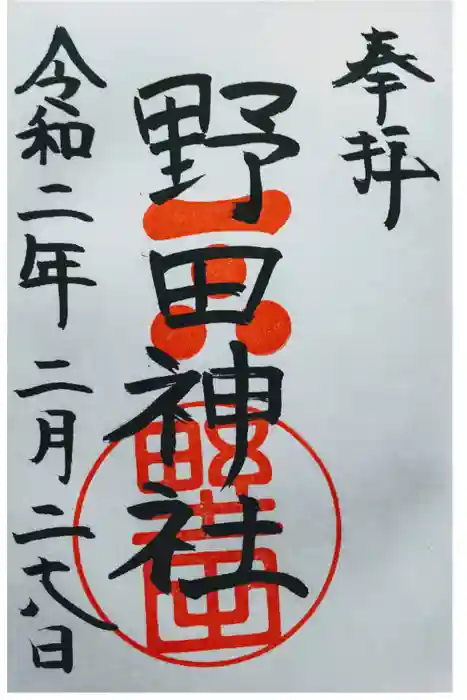 奉拝
野田神社
令和二年二月二十八日